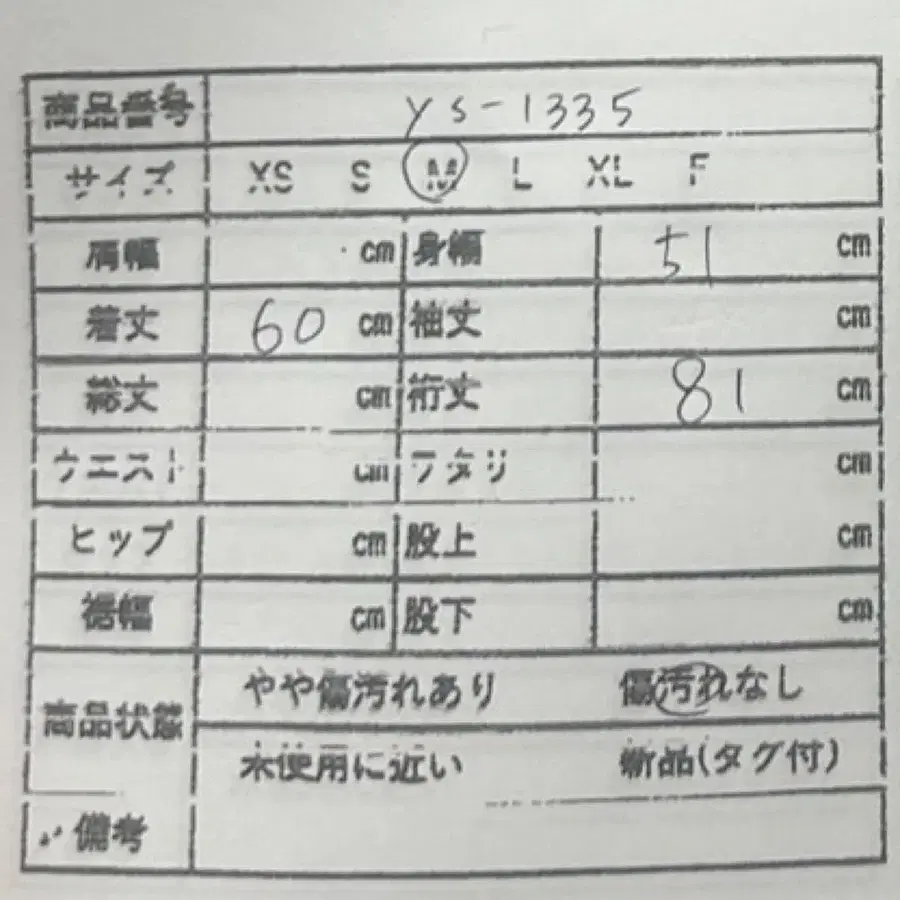 商品番号 ys-1335
サイズ XS S M L XL F
肩幅 cm 身幅 51 cm
着丈 60 cm 袖丈 cm
総丈 cm 裄丈 81 cm
ウエスト cm ワタリ cm
ヒップ cm 股上 cm
裾幅 cm 股下 cm
商品状態 やや傷汚れあり 傷汚れなし
未使用に近い 新品(タグ付)
備考